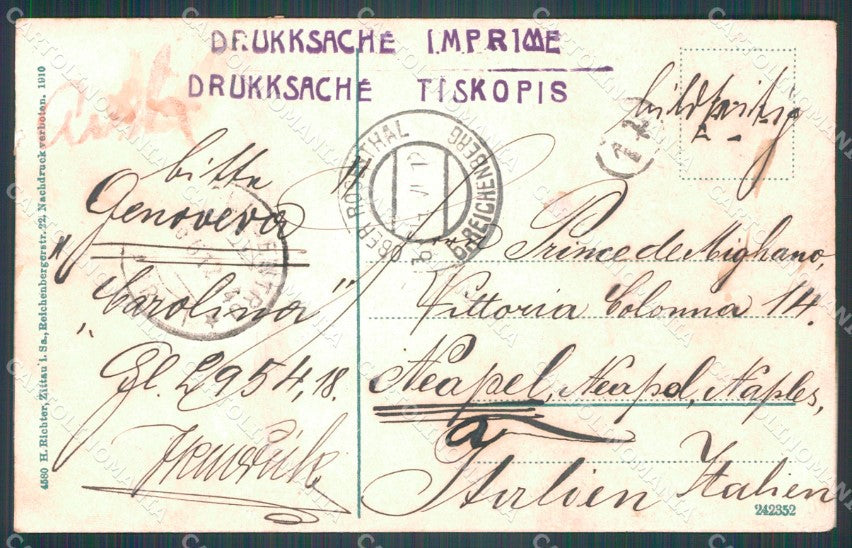 DRUKKSACHE IMPRIME
DRUKKSACHE TISKOPIS
bildseitig
OBER ROSENTHAL
b. REICHENBERG
bitte
Genoveva
"Carolina"
Gl. 2954,18.
Prince de Mighano,
Vittoria Colonna 14.
Neapel, Neapel, Naples,
Italien Italien
4580 H. Richter, Zittau i. Sa., Reichenbergerstr. 22. Nachdruck verboten. 1910
242352
CARTOLINOMANIA